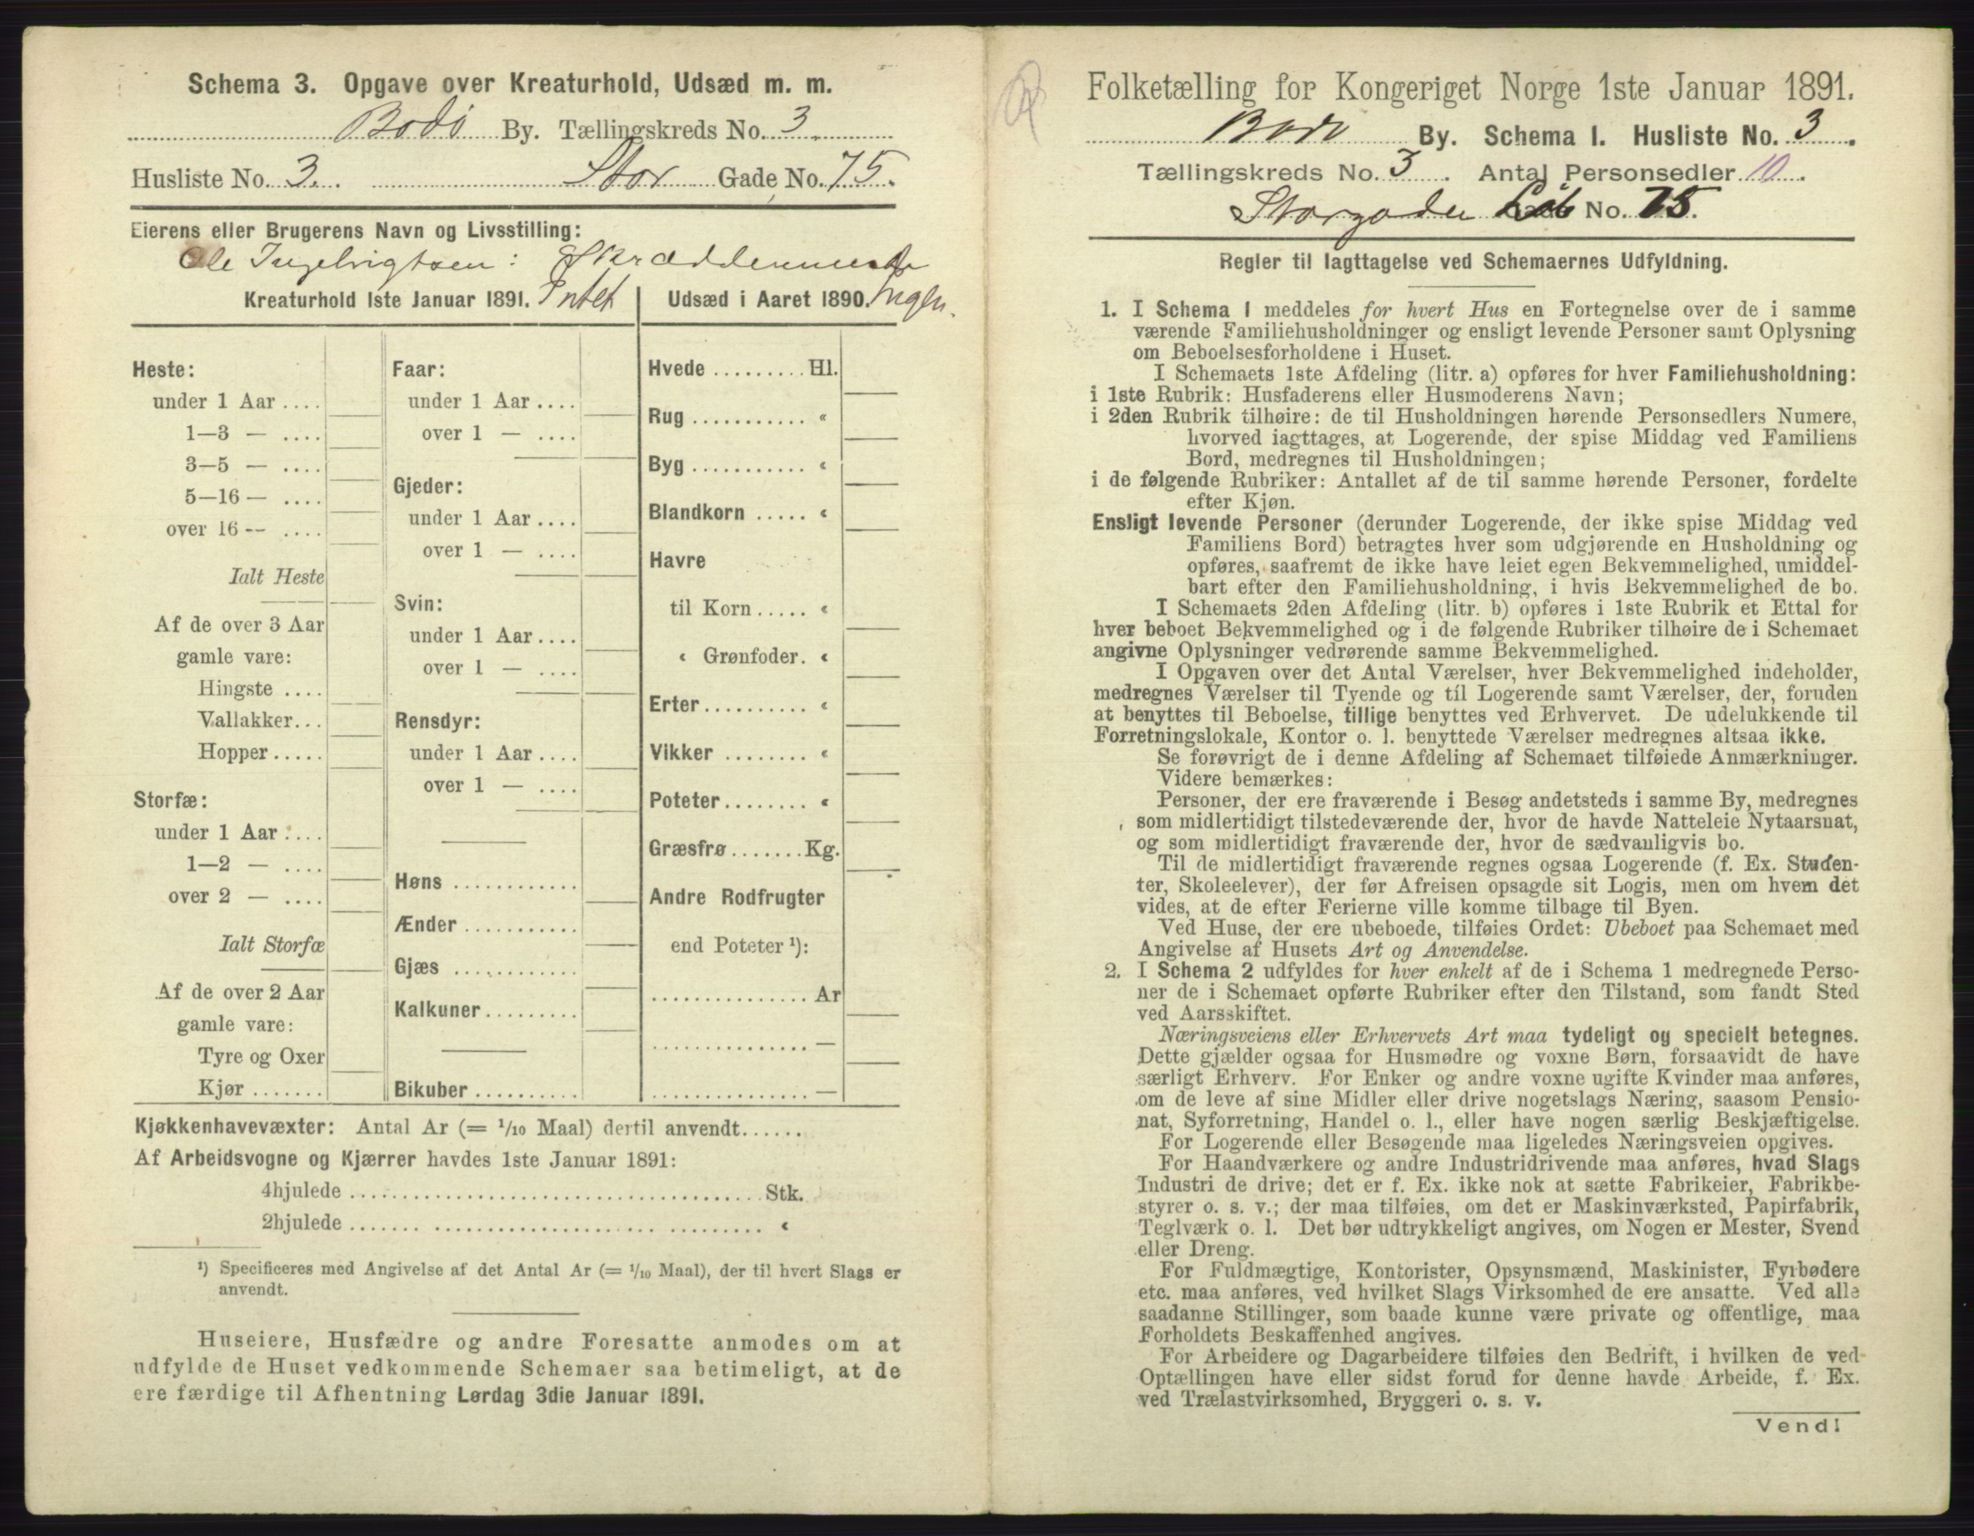 Schema 3. Opgave over Kreaturhold, Udsæd m. m.
Bodø By. Tællingskreds No. 3.
Husliste No. 3. Stor Gade No. 75.
Eierens eller Brugerens Navn og Livsstilling:
Ole Ingebrigtsen: Skræddersvend
Kreaturhold 1ste Januar 1891. Intet
Heste:
under 1 Aar ....
1—3 — ....
3—5 — ....
5—16 — ....
over 16 -- ....
Ialt Heste
Af de over 3 Aar
gamle vare:
Hingste ....
Vallakker...
Hopper.....
Storfæ:
under 1 Aar ....
1—2 — ....
over 2 — ....
Ialt Storfæ
Af de over 2 Aar
gamle vare:
Tyre og Oxer
Kjør .......
Faar:
under 1 Aar ....
over 1 — ....
Gjeder:
under 1 Aar ....
over 1 — ....
Svin:
under 1 Aar ....
over 1 — ....
Rensdyr:
under 1 Aar ....
over 1 — ....
Høns ............
Ænder ...........
Gjæs ............
Kalkuner .........
Bikuber ..........
Udsæd i Aaret 1890. Ingen.
Hvede ......... Hl.
Rug ........... «
Byg ........... «
Blandkorn ..... «
Havre
til Korn ..... «
« Grønfoder. «
Erter .......... «
Vikker ........ «
Poteter ........ «
Græsfrø ....... Kg.
Andre Rodfrugter
end Poteter ¹):
............... Ar
............... —
............... —
Kjøkkenhavevæxter: Antal Ar (= 1/10 Maal) dertil anvendt......
Af Arbeidsvogne og Kjærrer havdes 1ste Januar 1891:
4hjulede ........................................ Stk.
2hjulede ........................................ «
¹) Specificeres med Angivelse af det Antal Ar (= 1/10 Maal), der til hvert Slags er
anvendt.
Huseiere, Husfædre og andre Foresatte anmodes om at
udfylde de Huset vedkommende Schemaer saa betimeligt, at de
ere færdige til Afhentning Lørdag 3die Januar 1891.
Folketælling for Kongeriget Norge 1ste Januar 1891.
Bodø By. Schema I. Husliste No. 3.
Tællingskreds No. 3. Antal Personsedler 10.
Storgaden No. 75.
Regler til Iagttagelse ved Schemaernes Udfyldning.
1. I Schema 1 meddeles for hvert Hus en Fortegnelse over de i samme
værende Familiehusholdninger og ensligt levende Personer samt Oplysning
om Beboelsesforholdene i Huset.
I Schemaets 1ste Afdeling (litr. a) opføres for hver Familiehusholdning:
i 1ste Rubrik: Husfaderens eller Husmoderens Navn;
i 2den Rubrik tilhøire: de til Husholdningen hørende Personsedlers Numere,
hvorved iagttages, at Logerende, der spise Middag ved Familiens
Bord, medregnes til Husholdningen;
i de følgende Rubriker: Antallet af de til samme hørende Personer, fordelte
efter Kjøn.
Ensligt levende Personer (derunder Logerende, der ikke spise Middag ved
Familiens Bord) betragtes hver som udgjørende en Husholdning og
opføres, saafremt de ikke have leiet egen Bekvemmelighed, umiddel-
bart efter den Familiehusholdning, i hvis Bekvemmelighed de bo.
I Schemaets 2den Afdeling (litr. b) opføres i 1ste Rubrik et Ettal for
hver beboet Bekvemmelighed og i de følgende Rubriker tilhøire de i Schemaet
angivne Oplysninger vedrørende samme Bekvemmelighed.
I Opgaven over det Antal Værelser, hver Bekvemmelighed indeholder,
medregnes Værelser til Tyende og til Logerende samt Værelser, der, foruden
at benyttes til Beboelse, tillige benyttes ved Erhvervet. De udelukkende til
Forretningslokale, Kontor o. l. benyttede Værelser medregnes altsaa ikke.
Se forøvrigt de i denne Afdeling af Schemaet tilføiede Anmærkninger.
Videre bemærkes:
Personer, der ere fraværende i Besøg andetsteds i samme By, medregnes
som midlertidigt tilstedeværende der, hvor de havde Natteleie Nytaarsnat,
og som midlertidigt fraværende der, hvor de sædvanligvis bo.
Til de midlertidigt fraværende regnes ogsaa Logerende (f. Ex. Studen-
ter, Skoleelever), der før Afreisen opsagde sit Logis, men om hvem det
vides, at de efter Ferierne ville komme tilbage til Byen.
Ved Huse, der ere ubeboede, tilføies Ordet: Ubeboet paa Schemaet med
Angivelse af Husets Art og Anvendelse.
2. I Schema 2 udfyldes for hver enkelt af de i Schema 1 medregnede Perso-
ner de i Schemaet opførte Rubriker efter den Tilstand, som fandt Sted
ved Aarsskiftet.
Næringsveiens eller Erhvervets Art maa tydeligt og specielt betegnes.
Dette gjælder ogsaa for Husmødre og voxne Børn, forsaavidt de have
særligt Erhverv. For Enker og andre voxne ugifte Kvinder maa anføres,
om de leve af sine Midler eller drive nogetslags Næring, saasom Pensio-
nat, Syforretning, Handel o. l., eller have nogen særlig Beskjæftigelse.
For Logerende eller Besøgende maa ligeledes Næringsveien opgives.
For Haandværkere og andre Industridrivende maa anføres, hvad Slags
Industri de drive; det er f. Ex. ikke nok at sætte Fabrikeier, Fabrikbe-
styrer o. s. v.; der maa tilføies, om det er Maskinværksted, Papirfabrik,
Teglværk o. l. Det bør udtrykkeligt angives, om Nogen er Mester, Svend
eller Dreng.
For Fuldmægtige, Kontorister, Opsynsmænd, Maskinister, Fyrbødere
etc. maa anføres, ved hvilket Slags Virksomhed de ere ansatte. Ved alle
saadanne Stillinger, som baade kunne være private og offentlige, maa
Forholdets Beskaffenhed angives.
For Arbeidere og Dagarbeidere tilføies den Bedrift, i hvilken de ved
Optællingen have eller sidst forud for denne havde Arbeide, f. Ex.
ved Trælastvirksomhed, Bryggeri o. s. v.
Vend!